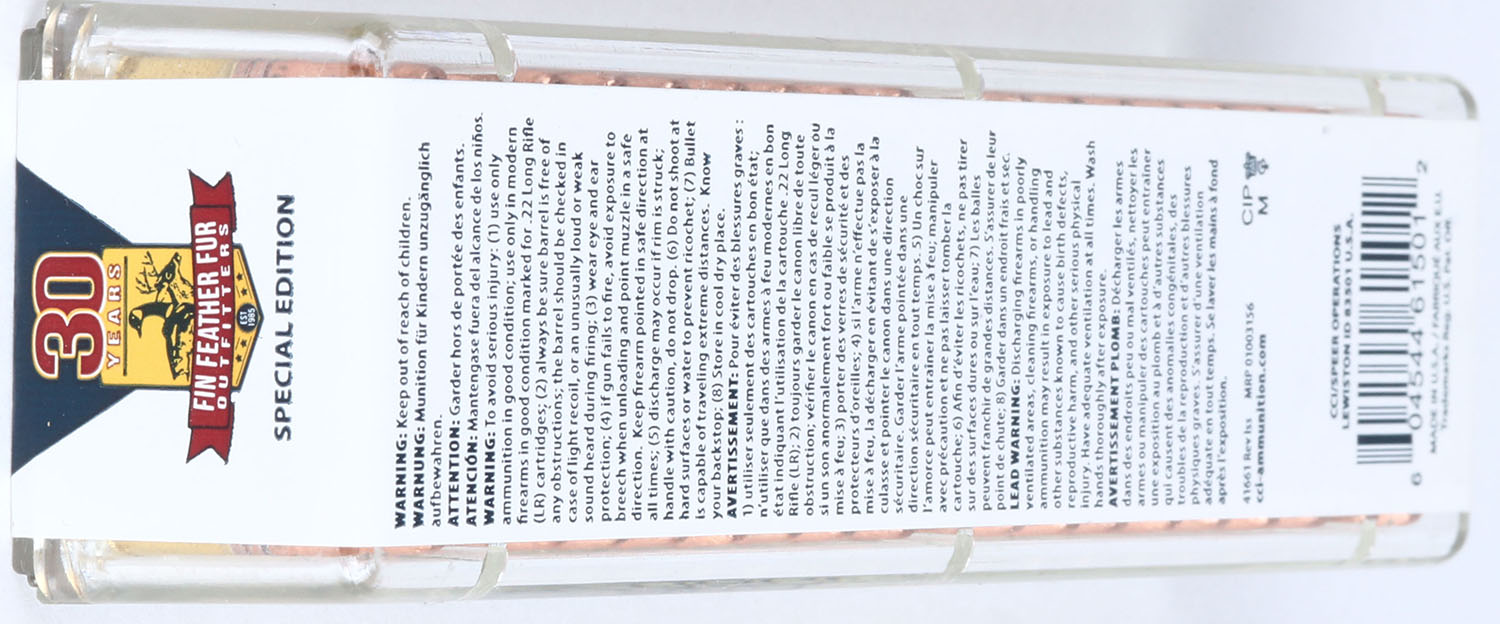 30
YEARS
FIN FEATHER FUR
OUTFITTERS
EST
1985
SPECIAL EDITION
WARNING: Keep out of reach of children.
WARNUNG: Munition für Kindern unzugänglich
aufbewahren.
ATTENTION: Garder hors de portée des enfants.
ATENCIÓN: Mantengase fuera del alcance de los niños.
WARNING: To avoid serious injury: (1) use only
ammunition in good condition; use only in modern
firearms in good condition marked for .22 Long Rifle
(LR) cartridges; (2) always be sure barrel is free of
any obstructions; the barrel should be checked in
case of light recoil, or an unusually loud or weak
sound heard during firing; (3) wear eye and ear
protection; (4) if gun fails to fire, avoid exposure to
breech when unloading and point muzzle in a safe
direction. Keep firearm pointed in safe direction at
all times; (5) discharge may occur if rim is struck;
handle with caution, do not drop. (6) Do not shoot at
hard surfaces or water to prevent ricochet; (7) Bullet
is capable of traveling extreme distances. Know
your backstop; (8) Store in cool dry place.
AVERTISSEMENT: Pour éviter des blessures graves :
1) utiliser seulement des cartouches en bon état;
n'utiliser que dans des armes à feu modernes en bon
état indiquant l'utilisation de la cartouche .22 Long
Rifle (LR); 2) toujours garder le canon libre de toute
obstruction; vérifier le canon en cas de recul léger ou
si un son anormalement fort ou faible se produit à la
mise à feu; 3) porter des verres de sécurité et des
protecteurs d'oreilles; 4) si l'arme n'effectue pas la
mise à feu, la décharger en évitant de s'exposer à la
culasse et pointer le canon dans une direction
sécuritaire. Garder l'arme pointée dans une
direction sécuritaire en tout temps. 5) Un choc sur
l'amorce peut entraîner la mise à feu; manipuler
avec précaution et ne pas laisser tomber la
cartouche; 6) Afin d'éviter les ricochets, ne pas tirer
sur des surfaces dures ou sur l'eau; 7) Les balles
peuvent franchir de grandes distances. S'assurer de leur
point de chute; 8) Garder dans un endroit frais et sec.
LEAD WARNING: Discharging firearms in poorly
ventilated areas, cleaning firearms, or handling
ammunition may result in exposure to lead and
other substances known to cause birth defects,
reproductive harm, and other serious physical
injury. Have adequate ventilation at all times. Wash
hands thoroughly after exposure.
AVERTISSEMENT PLOMB: Décharger les armes
dans des endroits peu ou mal ventilés, nettoyer les
armes ou manipuler des cartouches peut entraîner
une exposition au plomb et à d'autres substances
qui causent des anomalies congénitales, des
troubles de la reproduction et d'autres blessures
physiques graves. S'assurer d'une ventilation
adéquate en tout temps. Se laver les mains à fond
après l'exposition.
41661 Rev Iss MRP 01003156
cci-ammunition.com
CIP
M
CCI/SPEER OPERATIONS
LEWISTON ID 83501 U.S.A.
6 04544 61501 2
MADE IN U.S.A. / FABRIQUÉ AUX É.U.
Trademarks Reg. U.S. Pat. Off.